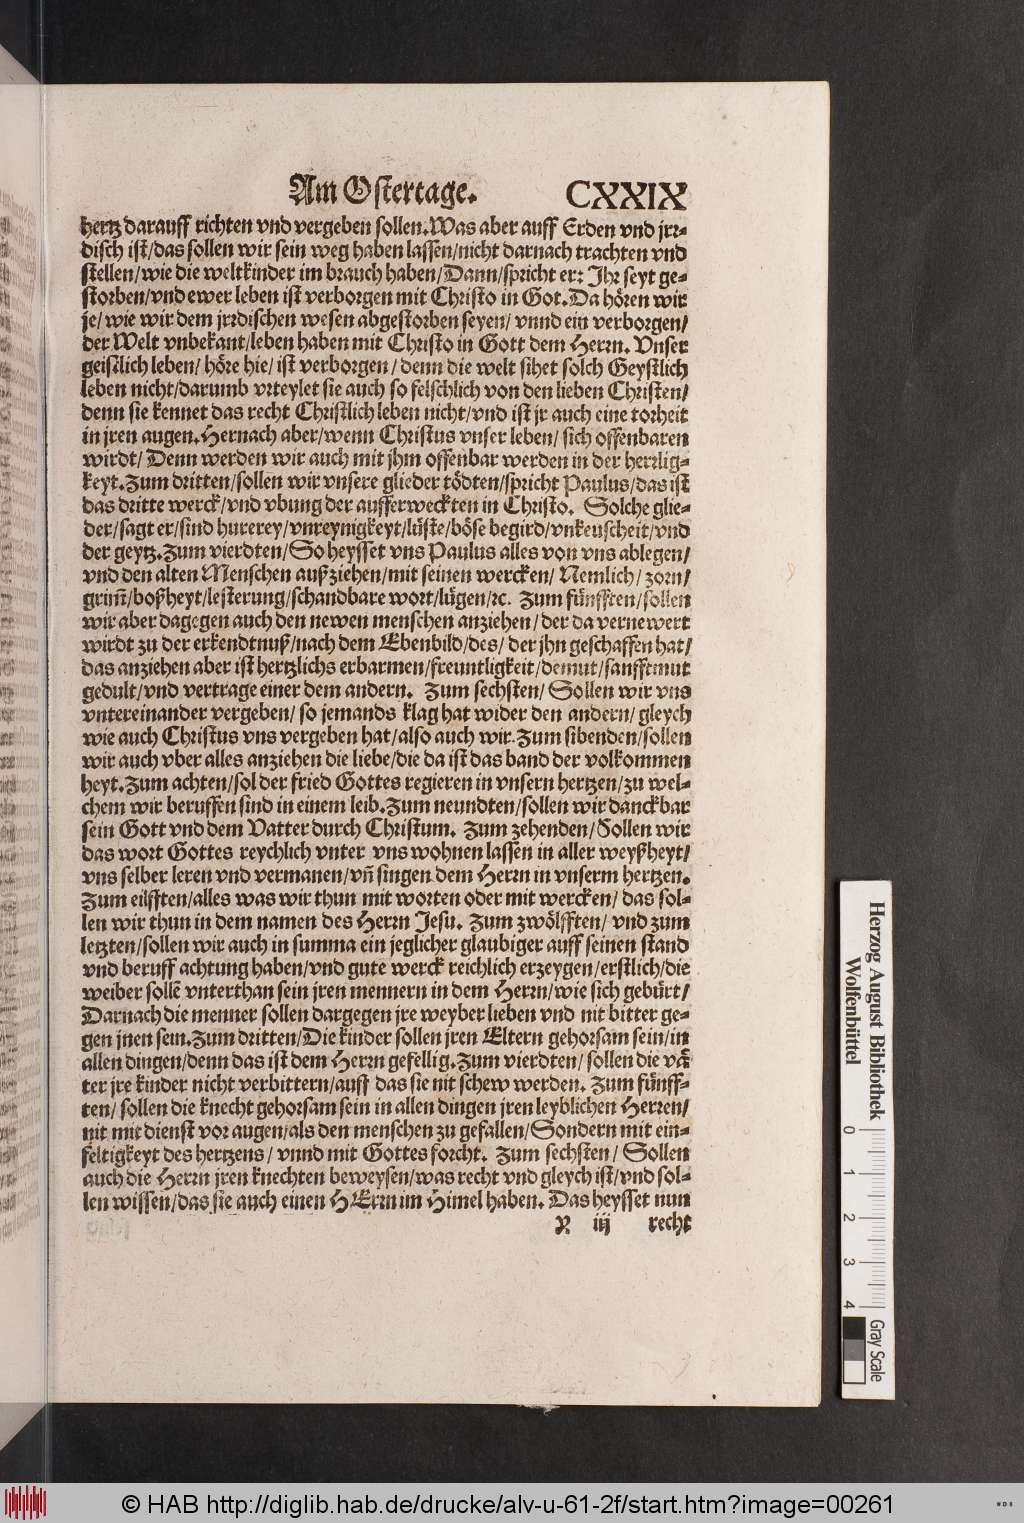 Am Ostertage. CXXIX
hertz darauff richten vnd vergeben sollen. Was aber auff Erden vnd jrr-
disch ist/das sollen wir sein weg haben lassen/nicht darnach trachten vnd
stellen/wie die weltkinder im brauch haben/Dann/spricht er: Ihr seyt ge-
storben/vnd ewer leben ist verborgen mit Christo in Got. Da hören wir
je/wie wir dem jrrdischen wesen abgestorben seyen/ vnnd ein verborgen/
der Welt vnbekant/leben haben mit Christo in Gott dem Herrn. Vnser
geistlich leben/ höre hie/ ist verborgen/ denn die welt sihet solch Geystlich
leben nicht/darumb vrteylet sie auch so felschlich von den lieben Christen/
denn sie kennet das recht Christlich leben nicht/vnd ist jr auch eine torheit
in jren augen. Hernach aber/wenn Christus vnser leben/ sich offenbaren
wirdt/ Denn werden wir auch mit jhm offenbar werden in der herrlig-
keyt. Zum dritten/sollen wir vnsere glieder tödten/spricht Paulus/das ist
das dritte werck/vnd vbung der aufferweckten in Christo. Solche glie-
der/sagt er/sind hurerey/vnreynigkeyt/lüste/böse begird/vnkeuscheit/vnd
der geytz. Zum vierdten/So heysset vns Paulus alles von vns ablegen/
vnd den alten Menschen außziehen/mit seinen wercken/ Nemlich/ zorn/
grim̃/boßheyt/lesterung/schandbare wort/lügen/ꝛc. Zum fünfften/sollen
wir aber dagegen auch den newen menschen anziehen/ der da vernewert
wirdt zu der erkendtnuß/nach dem Ebenbild/des/ der jhn geschaffen hat/
das anziehen aber ist hertzlichs erbarmen/freuntligkeit/demut/sanfftmut
gedult/vnd vertrage einer dem andern. Zum sechsten/ Sollen wir vns
vntereinander vergeben/ so jemands klag hat wider den andern/ gleych
wie auch Christus vns vergeben hat/also auch wir. Zum sibenden/sollen
wir auch vber alles anziehen die liebe/die da ist das band der volkommen
heyt. Zum achten/sol der fried Gottes regieren in vnsern hertzen/zu wel-
chem wir beruffen sind in einem leib. Zum neundten/sollen wir danckbar
sein Gott vnd dem Vatter durch Christum. Zum zehenden/ Sollen wir
das wort Gottes reychlich vnter vns wohnen lassen in aller weyßheyt/
vns selber leren vnd vermanen/vñ singen dem Herrn in vnserm hertzen.
Zum eilfften/alles was wir thun mit worten oder mit wercken/ das sol-
len wir thun in dem namen des Herrn Jesu. Zum zwölfften/ vnd zum
letzten/sollen wir auch in summa ein jeglicher glaubiger auff seinen stand
vnd beruff achtung haben/vnd gute werck reichlich erzeygen/erstlich/die
weiber sollẽ vnterthan sein jren mennern in dem Herrn/wie sich gebürt/
Darnach die menner sollen dargegen jre weyber lieben vnd nit bitter ge-
gen jnen sein. Zum dritten/Die kinder sollen jren Eltern gehorsam sein/in
allen dingen/denn das ist dem Herrn gefellig. Zum vierdten/ sollen die vä
ter jre kinder nicht verbittern/auff das sie nit schew werden. Zum fünff-
ten/ sollen die knecht gehorsam sein in allen dingen jren leyblichen Herren/
nit mit dienst vor augen/als den menschen zu gefallen/Sondern mit ein-
feltigkeyt des hertzens/ vnnd mit Gottes forcht. Zum sechsten/ Sollen
auch die Herrn jren knechten beweysen/was recht vnd gleych ist/vnd sol-
len wissen/das sie auch einen HErrn im Himel haben. Das heysset nun
Y iij recht
Herzog August Bibliothek
Wolfenbüttel
0 1 2 3 4
Gray Scale
© HAB http://diglib.hab.de/drucke/alv-u-61-2f/start.htm?image=00261